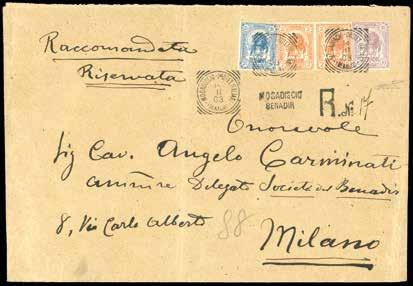 Raccomandata
Riservata
11
03
MOGADISCIO
BENADIR
R. No. 17
Onorevole
Sig Cav. Angelo Carminati
Delegato Società del Benadir
8, Via Carlo Alberto
88
Milano